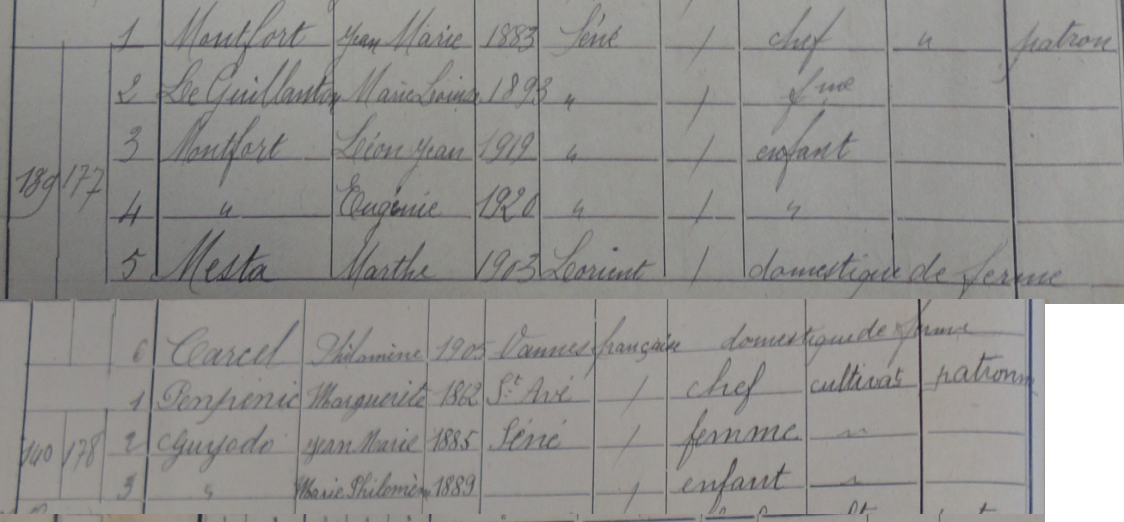 1 Montfort Jean Marie 1883 Séné / chef " patron
2 Le Guillanton Marie Louise 1893 " / fme
3 Montfort Léon Jean 1919 " / enfant
189 177
4 " Eugénie 1920 " / "
5 Mesta Marthe 1903 Lorient / domestique de ferme
6 Carcel Philomène 1905 Vannes française domestique de ferme
1 Penpénic Marguerite 1862 St Avé / chef cultivat patronne
140 178 2 Guyodo Jean Marie 1885 Séné / femme "
3 " Marie Philomène 1889 / enfant "